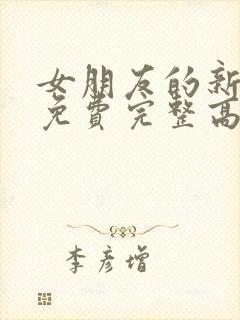 女朋友的新
免費完整高
李彦增